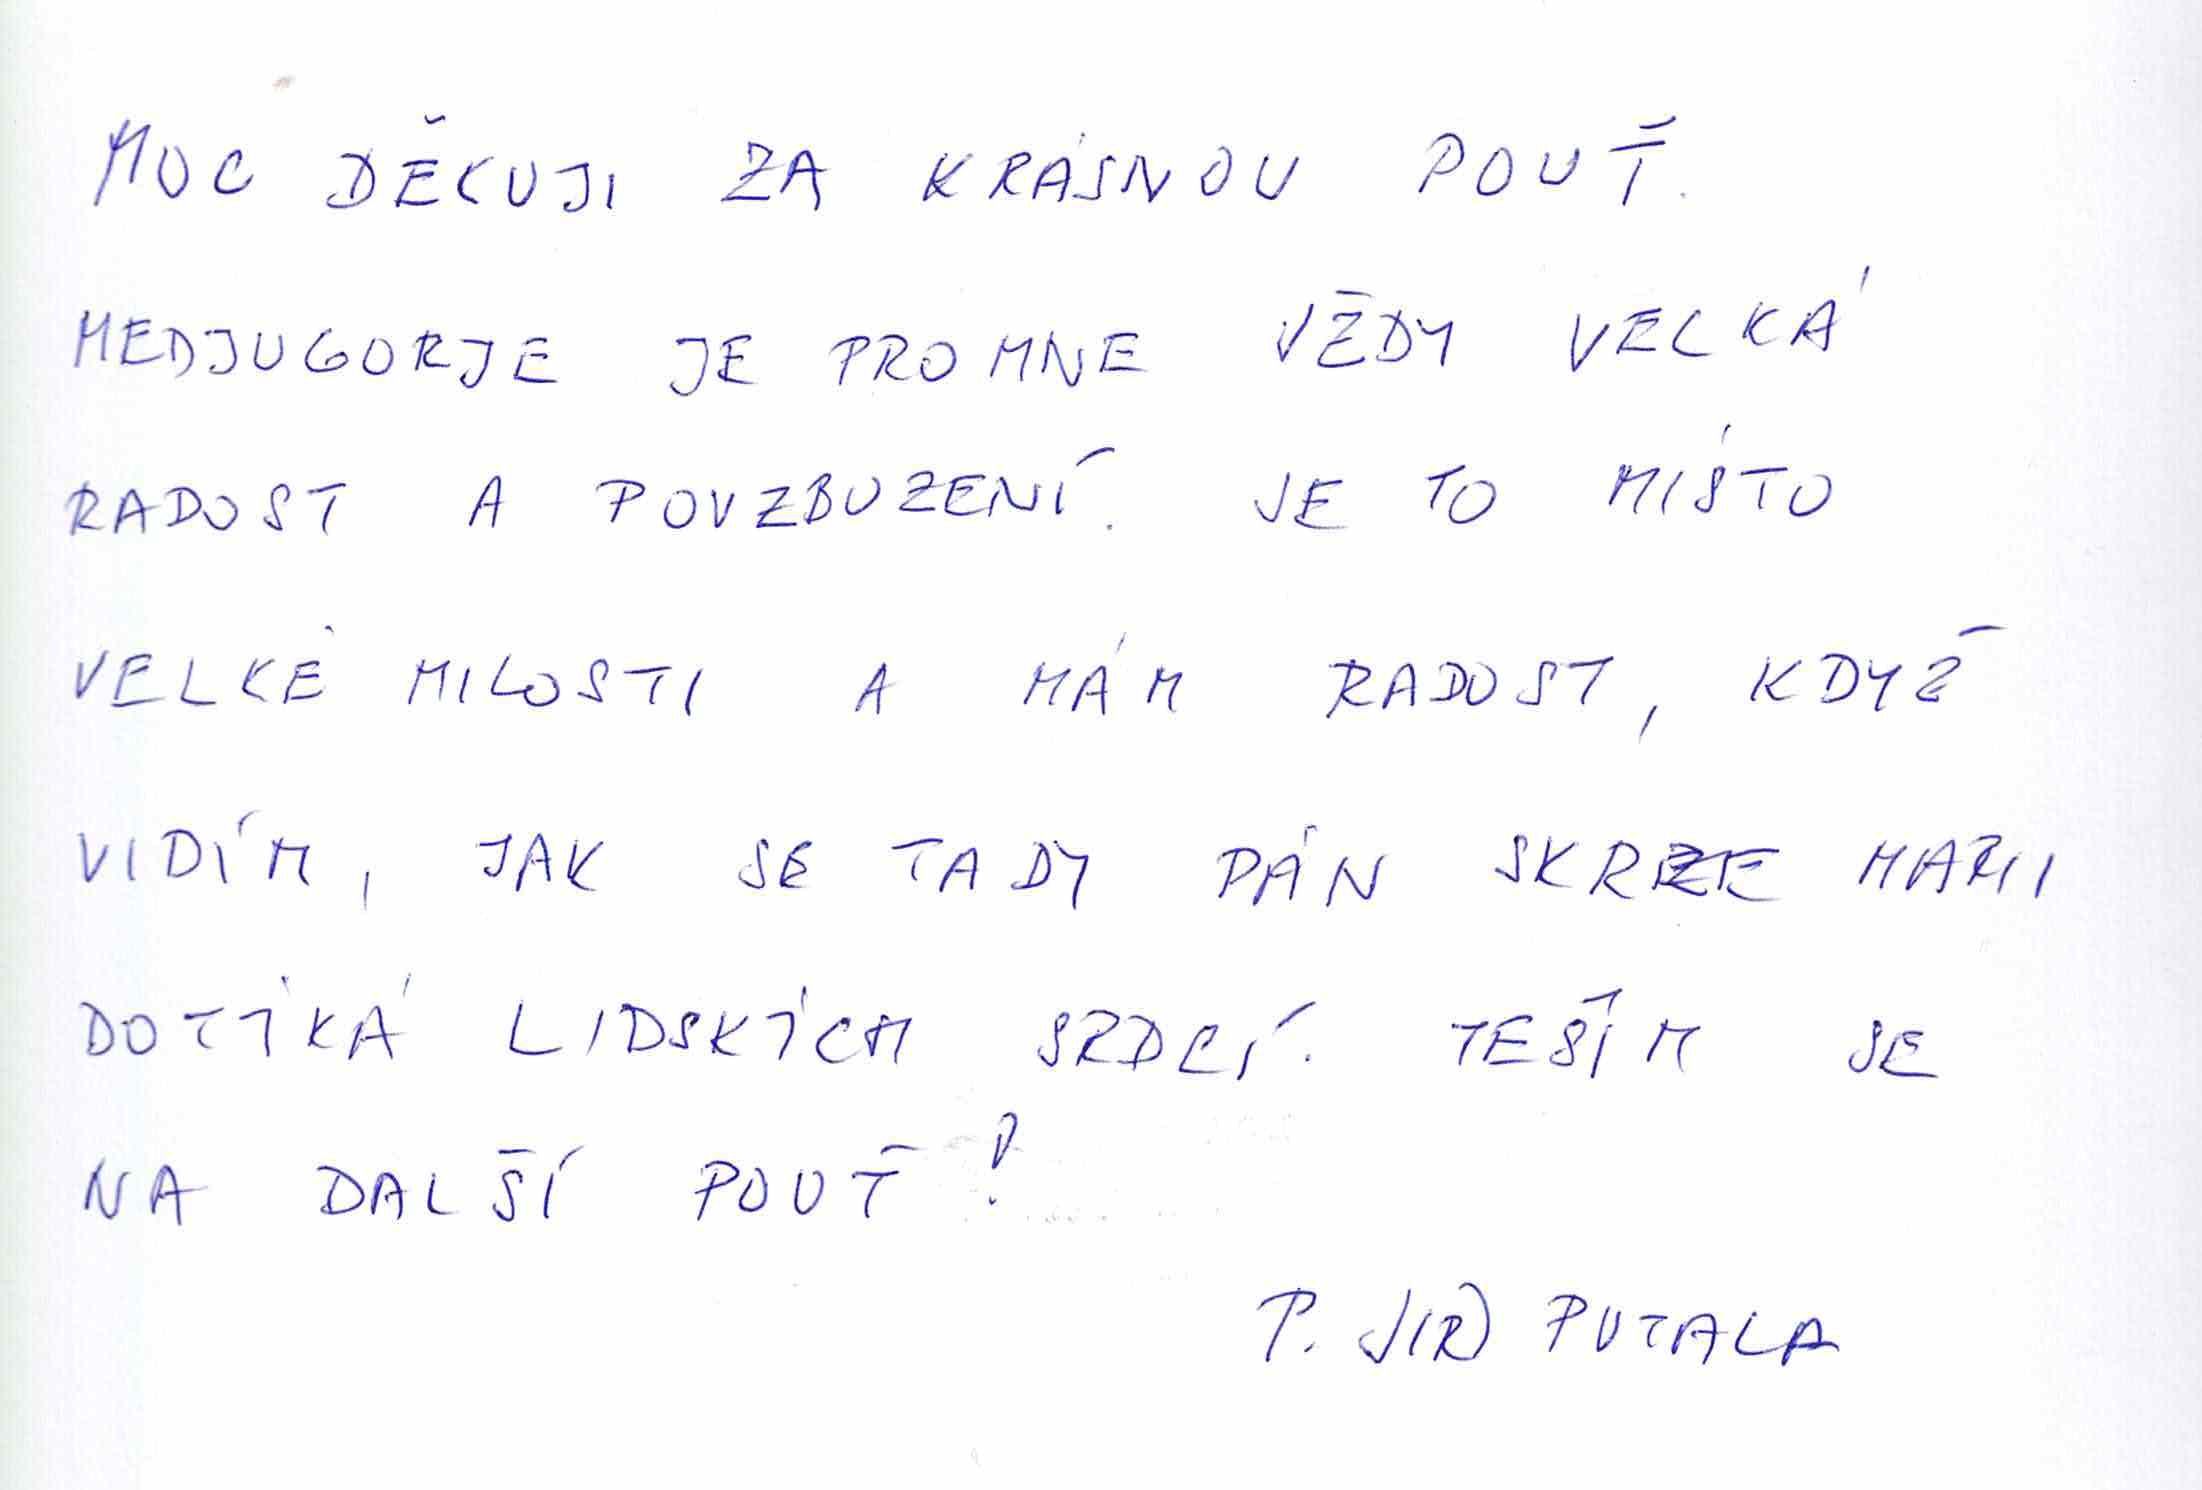 MOC DĚKUJI ZA KRÁSNOU POUŤ.
MEDJUGORJE JE PRO MNE VŽDY VELKÁ
RADOST A POVZBUZENÍ. JE TO MÍSTO
VELKÉ MILOSTI A MÁM RADOST, KDYŽ
VIDÍM, JAK SE TADY PÁN SKRZE MARII
DOTÝKÁ LIDSKÝCH SRDCÍ. TEŠÍM SE
NA DALŠÍ POUŤ!
P. JIŘÍ PUTALA